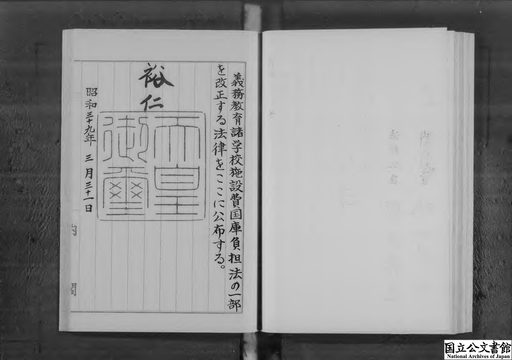 義務教育諸学校施設費国庫負担法の一部
を改正する法律をここに公布する。
裕仁
天皇
御璽
昭和三十九年三月三十一日
国立公文書館
National Archives of Japan